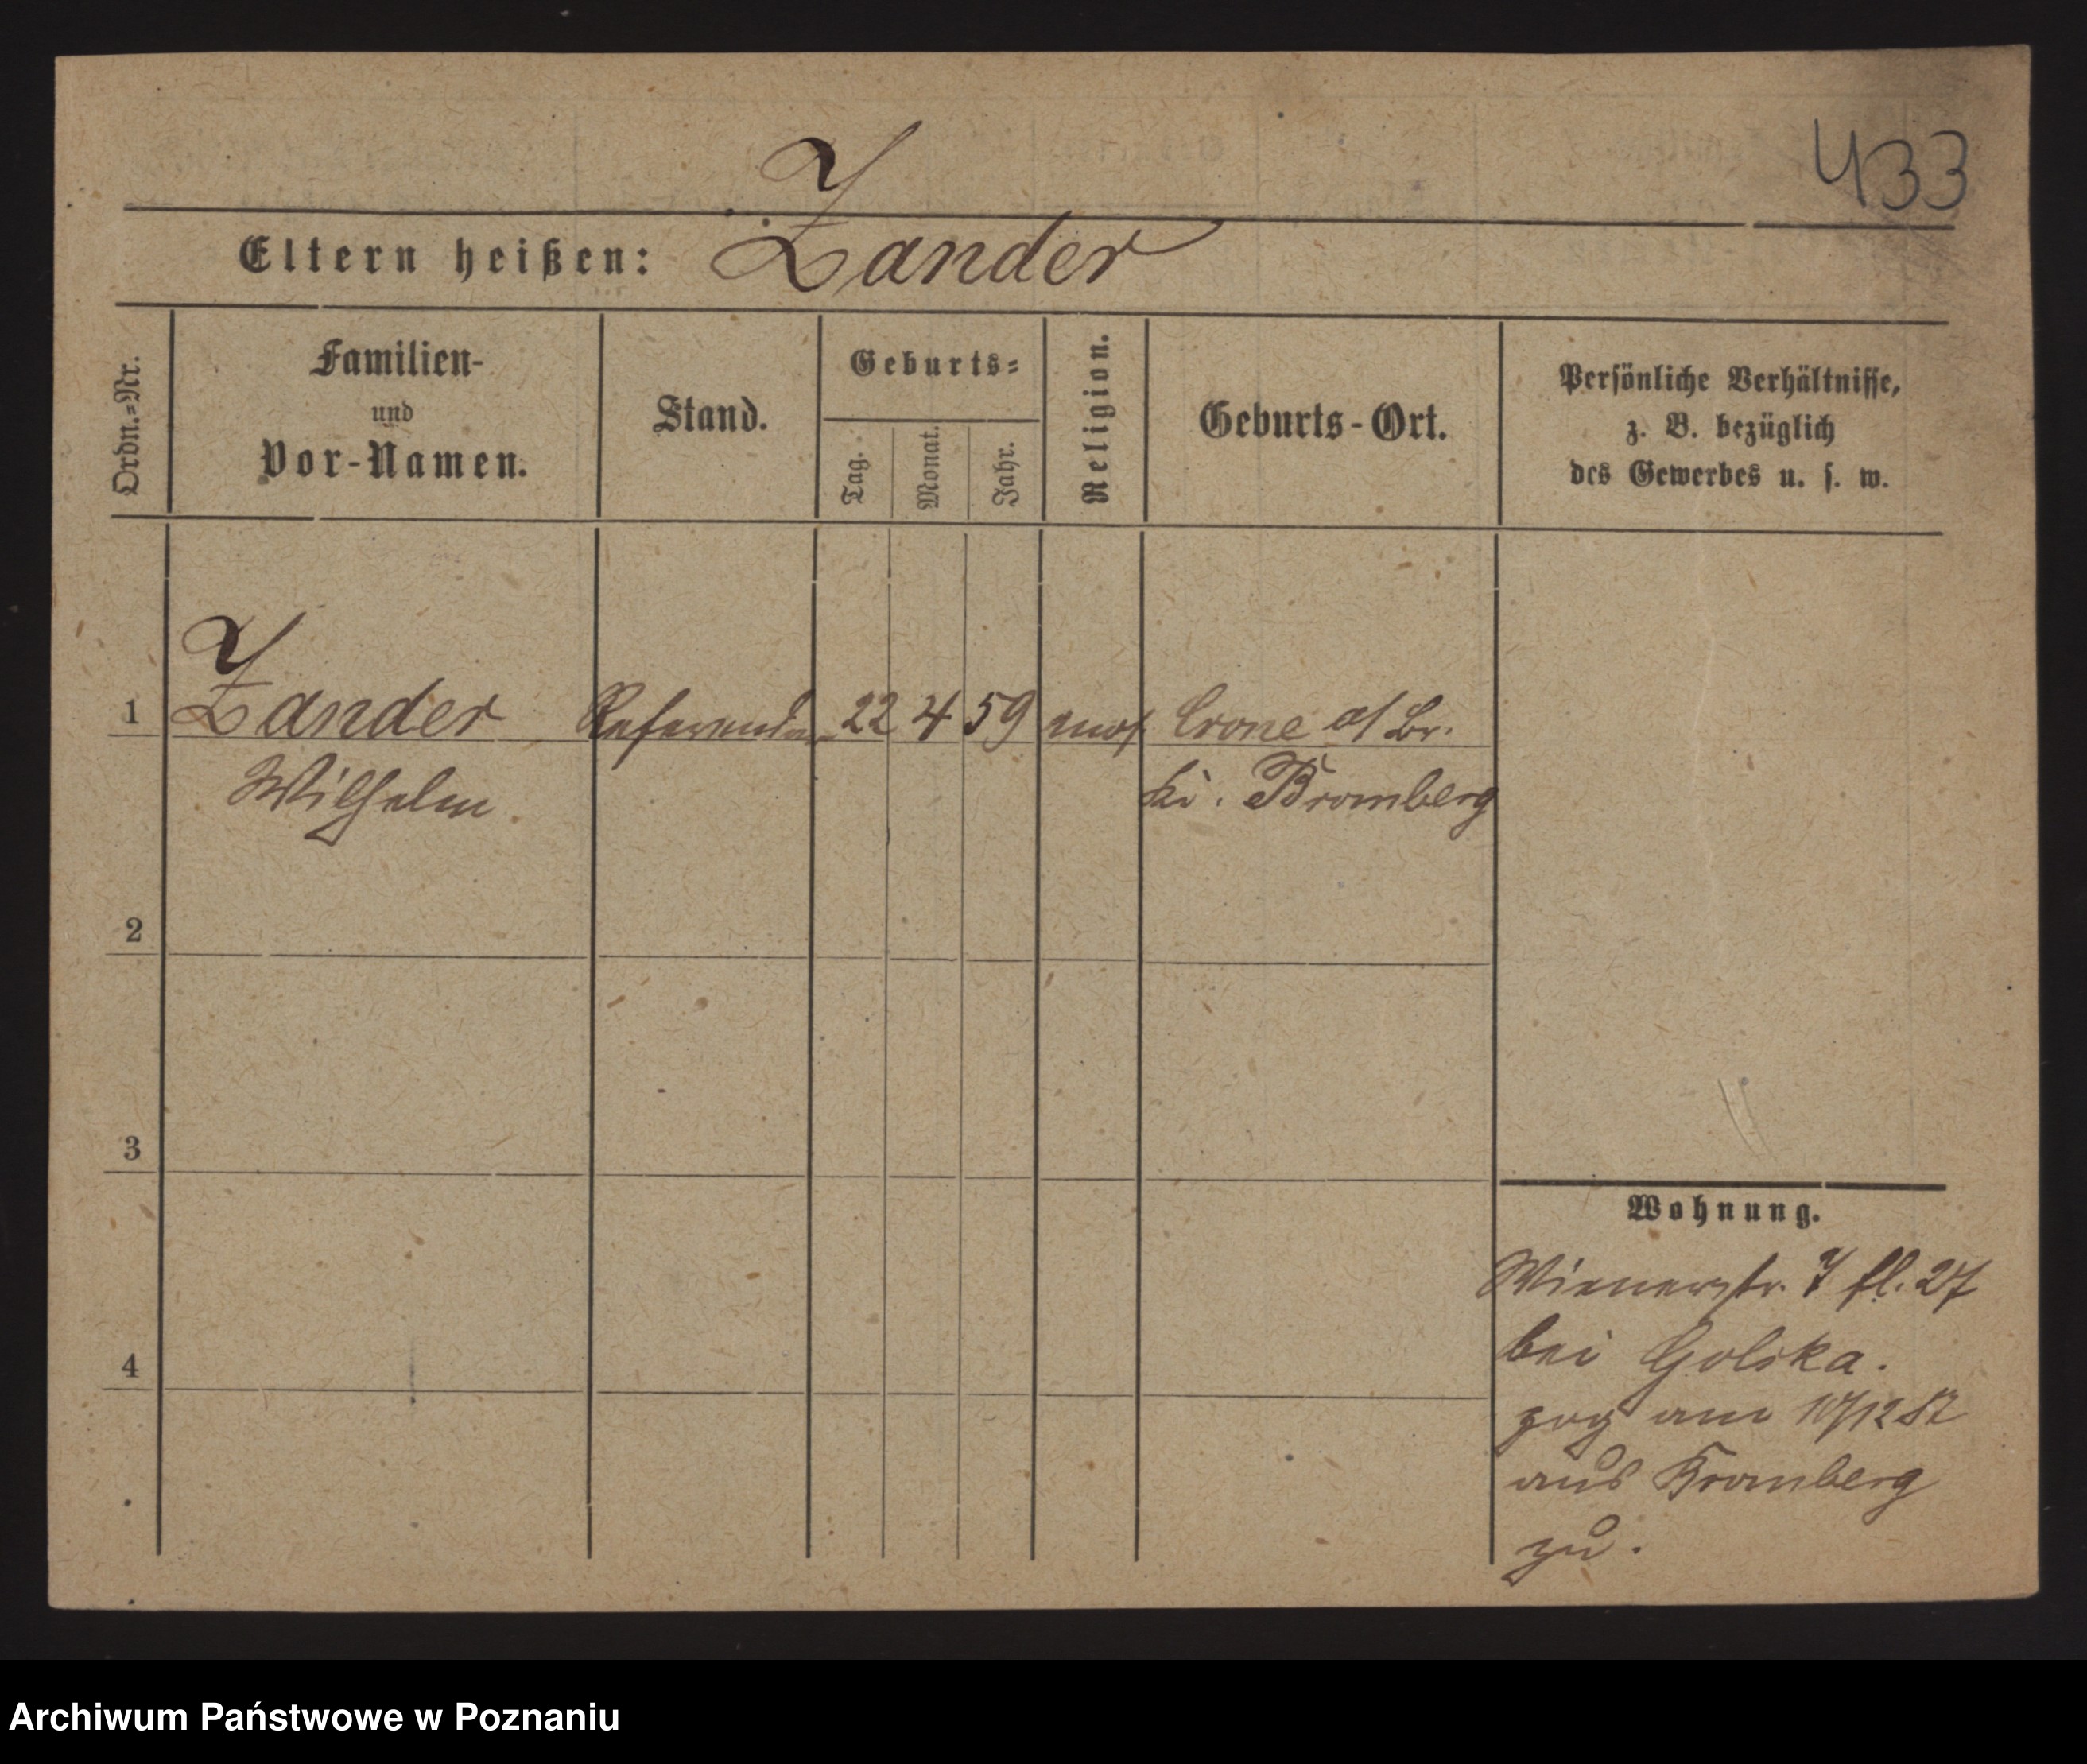 433
Eltern heißen: Zander
Ordn.=Nr.
Familien-
und
Vor-Namen.
Stand.
Geburts=
Tag.
Monat.
Jahr.
Religion.
Geburts-Ort.
Persönliche Verhältnisse,
z. B. bezüglich
des Gewerbes u. s. w.
1 Zander Referendar 22 4 59 mos Crone a/Br.
Wilhelm Kr. Bromberg
2
3
4
Wohnung.
Wienerstr. 7 fl. 27
bei Golska.
zog am 10/12 87
aus Bromberg
zu.
Archiwum Państwowe w Poznaniu